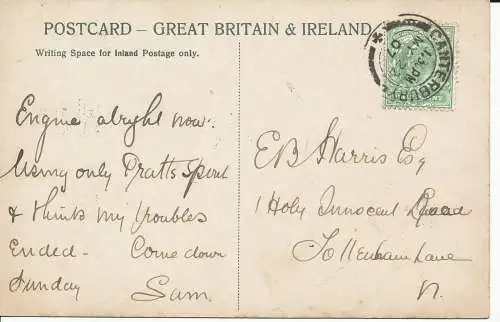 POSTCARD — GREAT BRITAIN & IRELAND
Writing Space for Inland Postage only.
CANTERBURY
Engine alright now.
Using only Pratts Spirit
& think my troubles
Ended. Come down
Sunday Sam.
E B Harris Esq
1 Holy Innocent Road
Tottenham Lane
N.